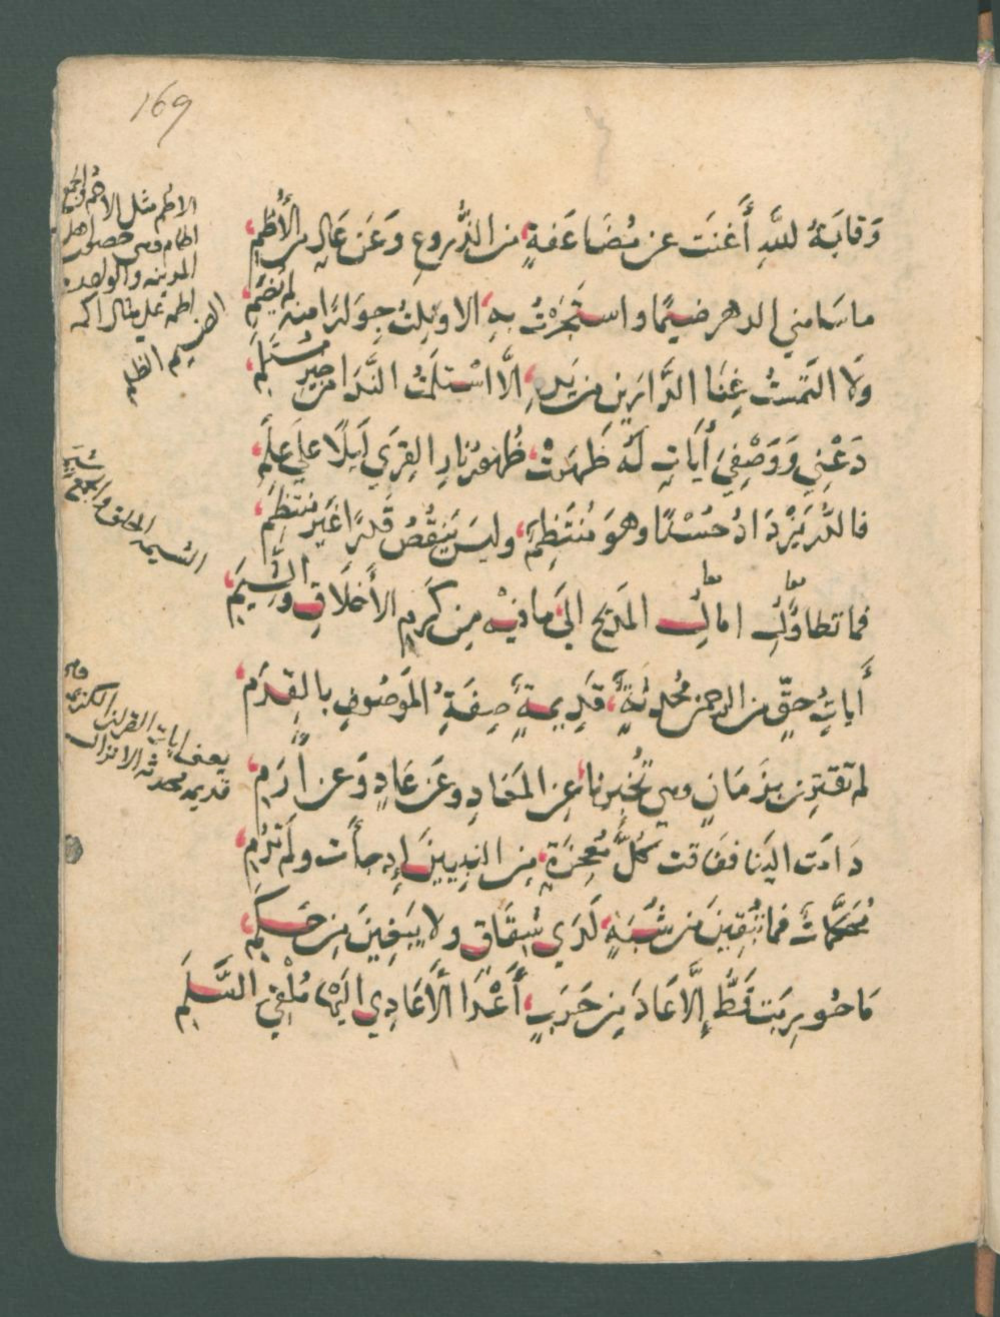 169
وَقَايَةُ للَّهِ أَغنَت عن مُضَاعَفةٍ من الدُّروعِ وَعَن عَالٍ من الأُطُمِ
ما سَامني الدهر ضيمًا واستَجَرْتُ بهِ الا ونِلتُ جِوَارًا منه لم يُضَمِ
ولَا التَمستُ غِنَا الدَّارَينِ من يَدِهِ الَّا اسْتلَمتُ النَّدَا من خيرِ مُسْتَلَمِ
دَعْنِي وَوَصْفِيَ أَيَاتٍ لَهُ ظَهَرَتْ ظُهورَ نارِ القِرَي لَيلًا علَي عَلَمِ
فالدُّر يَزْدَادُ حُسْنًا وهوَ مُنتَظِمٌ وليسَ يَنقُصُ قَدرًا غَيرَ مُنتظِمِ
فما تطاوُلُ امالُ المَدِيح اليَ ما فيْهِ مِن كَرَمِ الأَخلَاقِ والشِّيَمِ
أَياتُ حقٍّ من الرحمن مُحدَثةٌ قَدِيمةٌ صِفَةُ المَوصُوفِ بالقِدَمِ
لم تقترِن بِزَمَانٍ وهي تُخبِرنا عنِ المَعَادِ وعَن عَادٍ وَعن أَرَمِ
دَامَت لدَينا ففاقت كُلَّ مُعجِزَةٍ مِن النبيينَ إِد جأَت ولَم تَدُمِ
مُحَكَّماتٌ فما تُبْقِينَ من شُبَهٍ لَدَي شِقَاقٍ ولا يَبغينَ مِن حَكَمِ
مَا حُورِبَت قَطُّ إِلَّا عَادَ مِن حَرَبٍ أَعْدَا الأَعَادِي اليْهَا مُلْقِيَ السَّلَمِ
الاطم مثل الاكم والجمع
اطام وهي حصون اهل
المدينه والواحدة
اطمه علي مثال اكمه
الضيم الظلم
الشيمه الخلق والجمع شيم
يعني ايات القران الكريم
قديمه محدثه الانزال